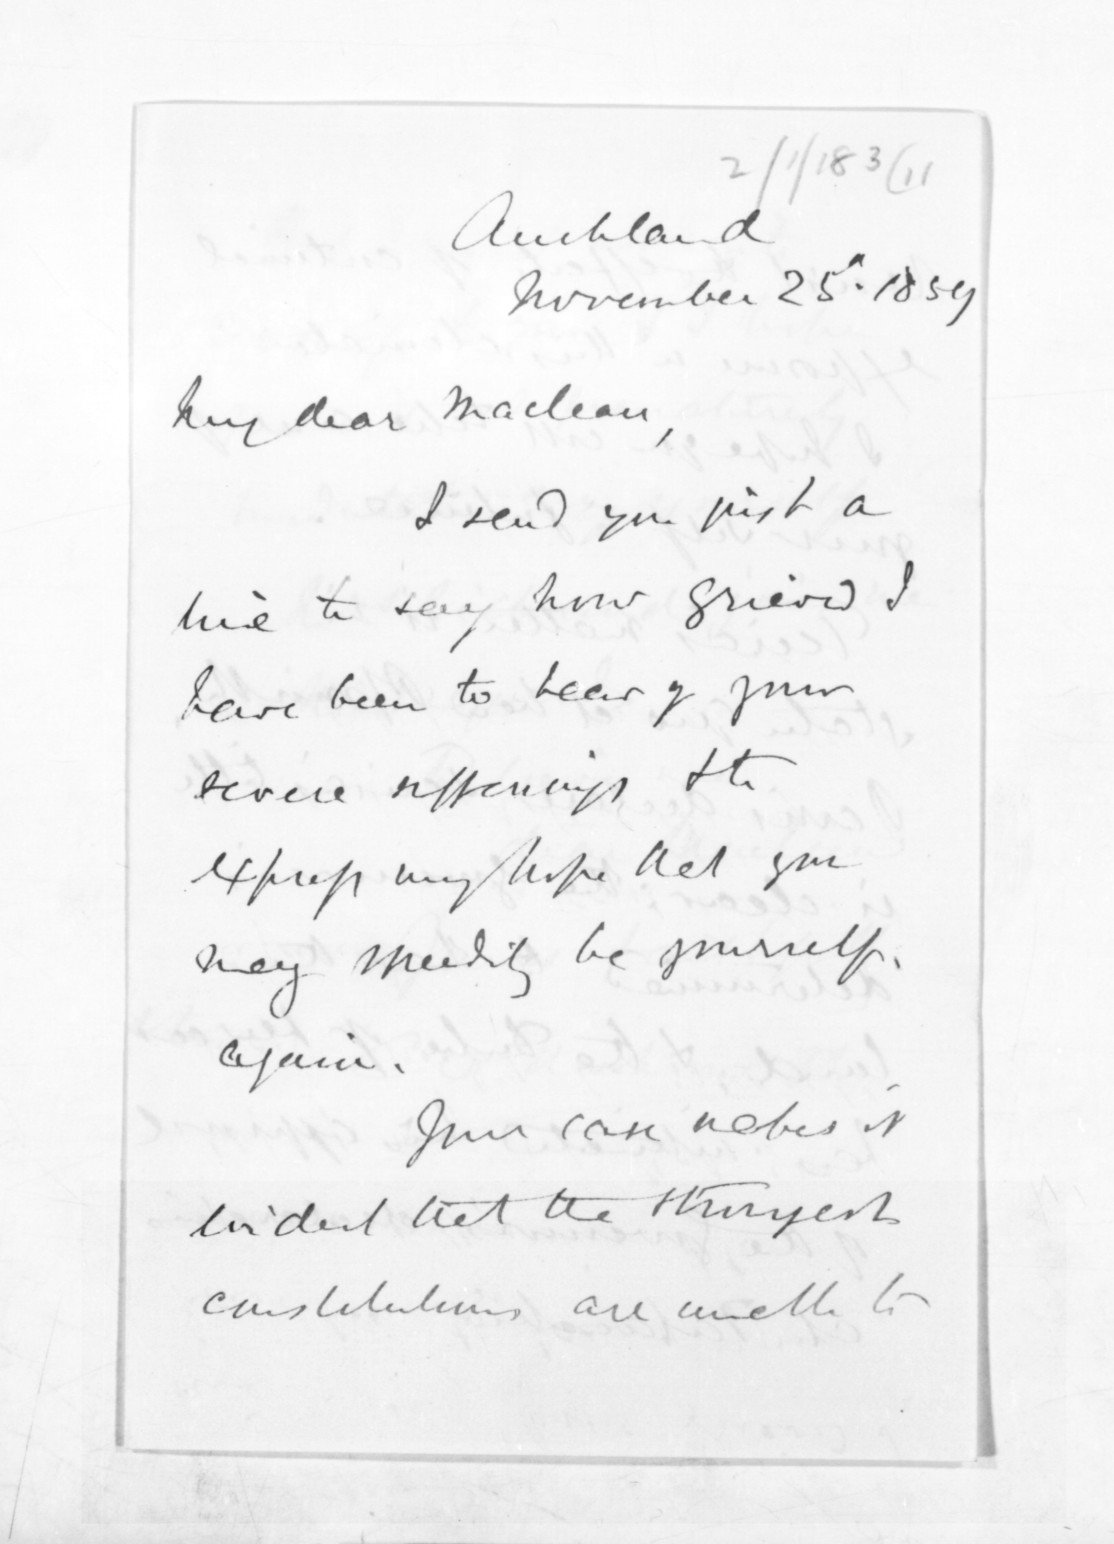 2/1/183/11
Auckland
November 25th. 1859
My dear Maclean,
I send you just a
line to say how grieved I
have been to hear of your
severe sufferings & to
express my hope that you
may speedily be yourself.
again.
Your case makes it
evident that the strongest
constitutions are unable to